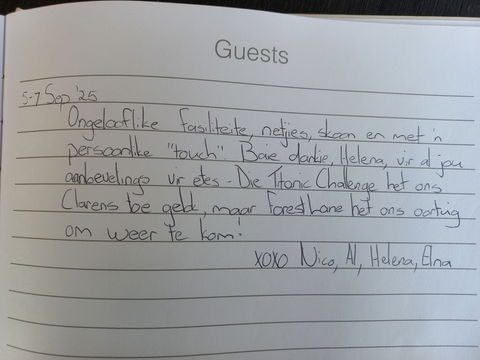 Guests
5-7 Sep '25
Ongelooflike fasiliteite, netjies, skoon en met 'n
persoonlike "touch". Baie dankie, Helena, vir al jou
aanbevelings vir etes - Die Titanic Challenge het ons
Clarens toe gebk, maar Foresthane het ons oortuig
om weer te kom!
xoxo Nico, Al, Helena, Elna